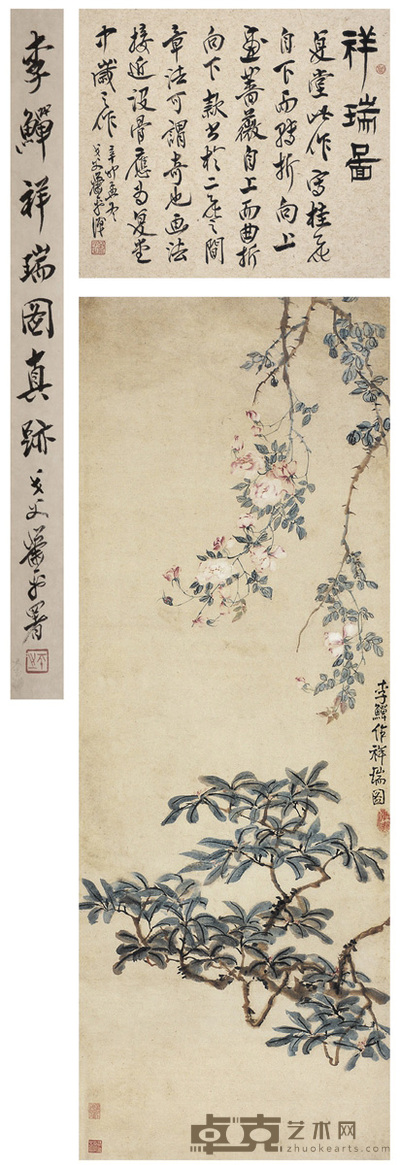 祥瑞图
复堂此作写桂花
自下而转折向上
画蔷薇自上而曲折
向下款书于二花之间
章法可谓奇也画法
接近没骨应为复堂
中岁之作
辛卯孟冬
李鱓祥瑞图真跡
李鱓作祥瑞图
卓克艺术网
zhuokearts.com